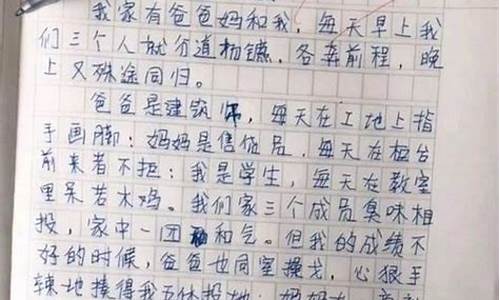 我家有爸爸妈和我，每天早上我
们三个人就分道杨镳，各奔前程，晚
上又殊途同归。
爸爸是建筑师，每天在工地上指
手画脚；妈妈是售货员，每天在柜台
前来者不拒；我是学生，每天在教室
里呆若木鸡。我们家三个成员臭味相
投，家中一团和气。但我的成绩不
好的时候，爸爸也同室操戈，心狠手
辣地揍得我五体投地；妈妈在